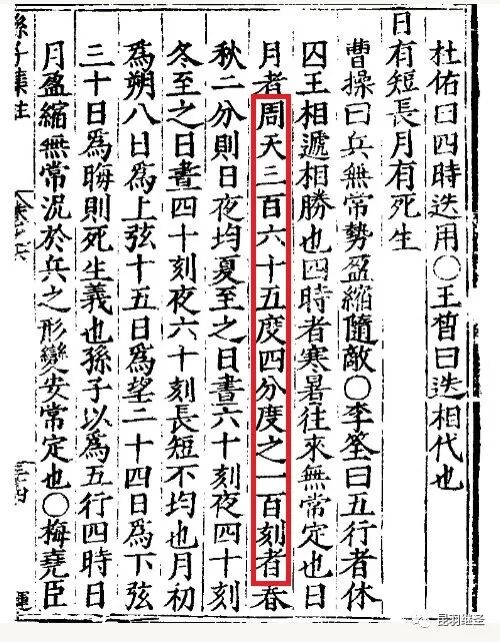 杜佑曰四時迭用〇王晳曰迭相代也
日有短長月有死生
曹操曰兵無常勢盈縮隨敵〇李筌曰五行者休
囚王相遞相勝也四時者寒暑往來無常定也日
月者周天三百六十五度四分度之一百刻者春
秋二分則日夜均夏至之日晝六十刻夜四十刻
冬至之日晝四十刻夜六十刻長短不均也月初
爲朔八日爲上弦十五日爲望二十四日爲下弦
三十日爲晦則死生義也孫子以爲五行四時日
月盈縮無常況於兵之形變安常定也〇梅堯臣
孫子集注
昆羽继圣